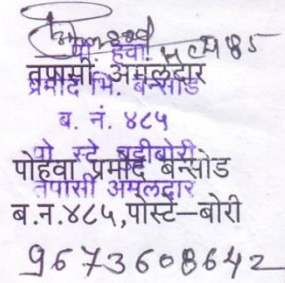 पो हवा. HC 485
तपासी अमलदार
प्रमोद भि. बन्सोड
ब. नं. ४८५
पो स्टे बुट्टीबोरी
पोहवा प्रमोद बन्सोड
तपासी अमलदार
ब.न.४८५,पोस्टे–बोरी
9673608642